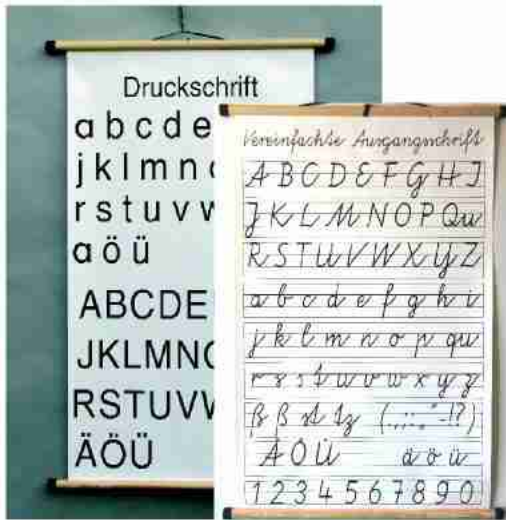 Druckschrift
a b c d e
j k l m n
r s t u v w
ä ö ü
ABCDE
JKLMNO
RSTUVW
ÄÖÜ
Vereinfachte Ausgangsschrift
A B C D E F G H I
J K L M N O P Qu
R S T U V W X Y Z
a b c d e f g h i
j k l m n o p qu
r s s t u v w x y z
ß ß st tz (.,;:„“-!?)
Ä Ö Ü ä ö ü
1 2 3 4 5 6 7 8 9 0